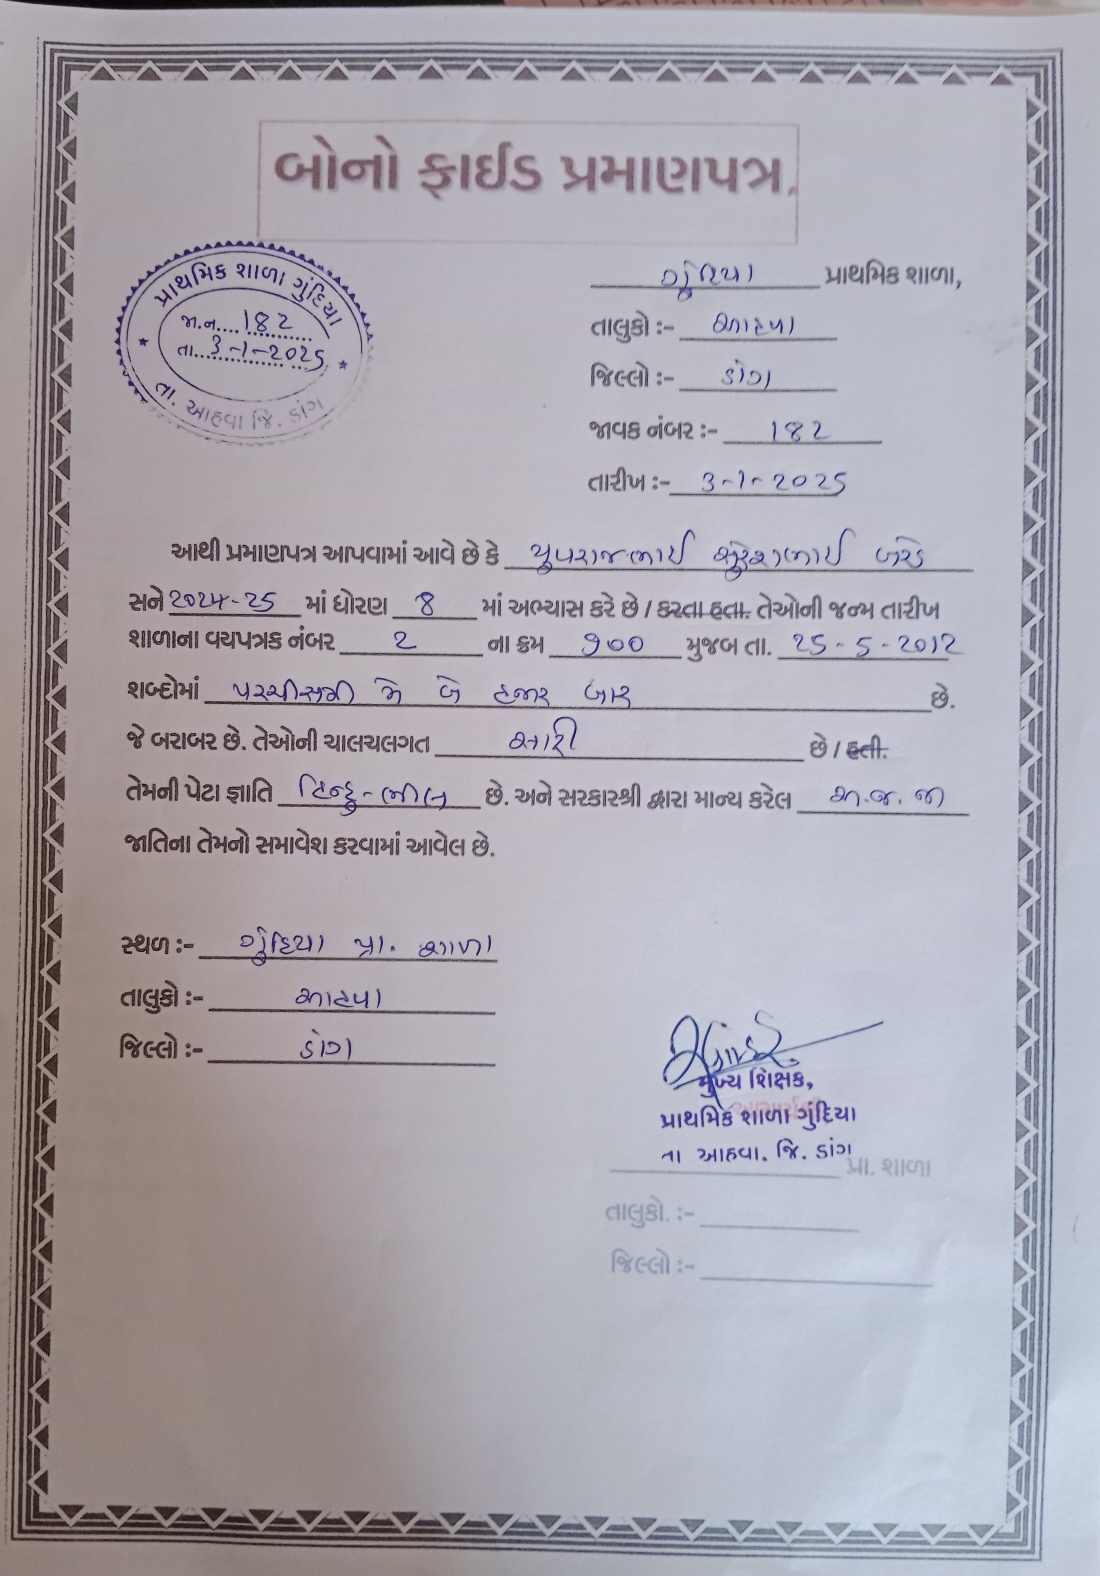 બોનો ફાઈડ પ્રમાણપત્ર.
પ્રાથમિક શાળા ગુંદિયા
જા.ન.... 182
તા... 3-1-2025
તા. આહવા જિ. ડાંગ
ગુંદિયા પ્રાથમિક શાળા,
તાલુકો :- આહવા
જિલ્લો :- ડાંગ
જાવક નંબર :- 182
તારીખ :- 3-1-2025
આથી પ્રમાણપત્ર આપવામાં આવે છે કે યુવરાજભાઈ સુરેશભાઈ
સને 2024-25 માં ધોરણ 8 માં અભ્યાસ કરે છે / કરતા હતા. તેઓની જન્મ તારીખ
શાળાના વયપત્રક નંબર 2 ના ક્રમ ૭૦૦ મુજબ તા. 25-5-2012
શબ્દોમાં પચ્ચીસમી મે બે હજાર બાર છે.
જે બરાબર છે. તેઓની ચાલચલગત સારી છે / હતી.
તેમની પેટા જ્ઞાતિ હિન્દુ-ભીલ છે. અને સરકારશ્રી દ્વારા માન્ય કરેલ અ.જ.જા
જાતિના તેમનો સમાવેશ કરવામાં આવેલ છે.
સ્થળ :- ગુંદિયા પ્રા. શાળા
તાલુકો :- આહવા
જિલ્લો :- ડાંગ
મુખ્ય શિક્ષક,
પ્રાથમિક શાળા ગુંદિયા
તા આહવા. જિ. ડાંગ
પ્રા. શાળા
તાલુકો. :-
જિલ્લો :-